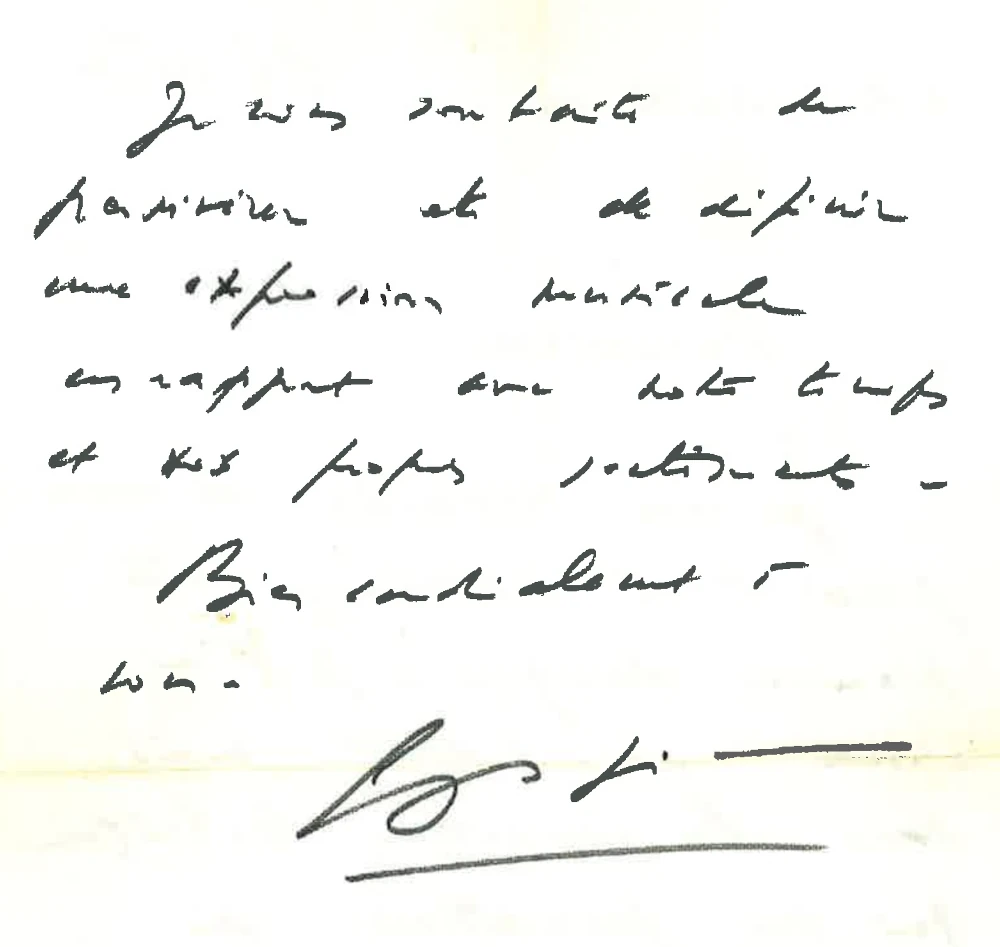 Je vous souhaite de
persévérer et de définir
une expression musicale
en rapport avec notre temps
et vos propres sentiments -
Bien cordialement à
vous.